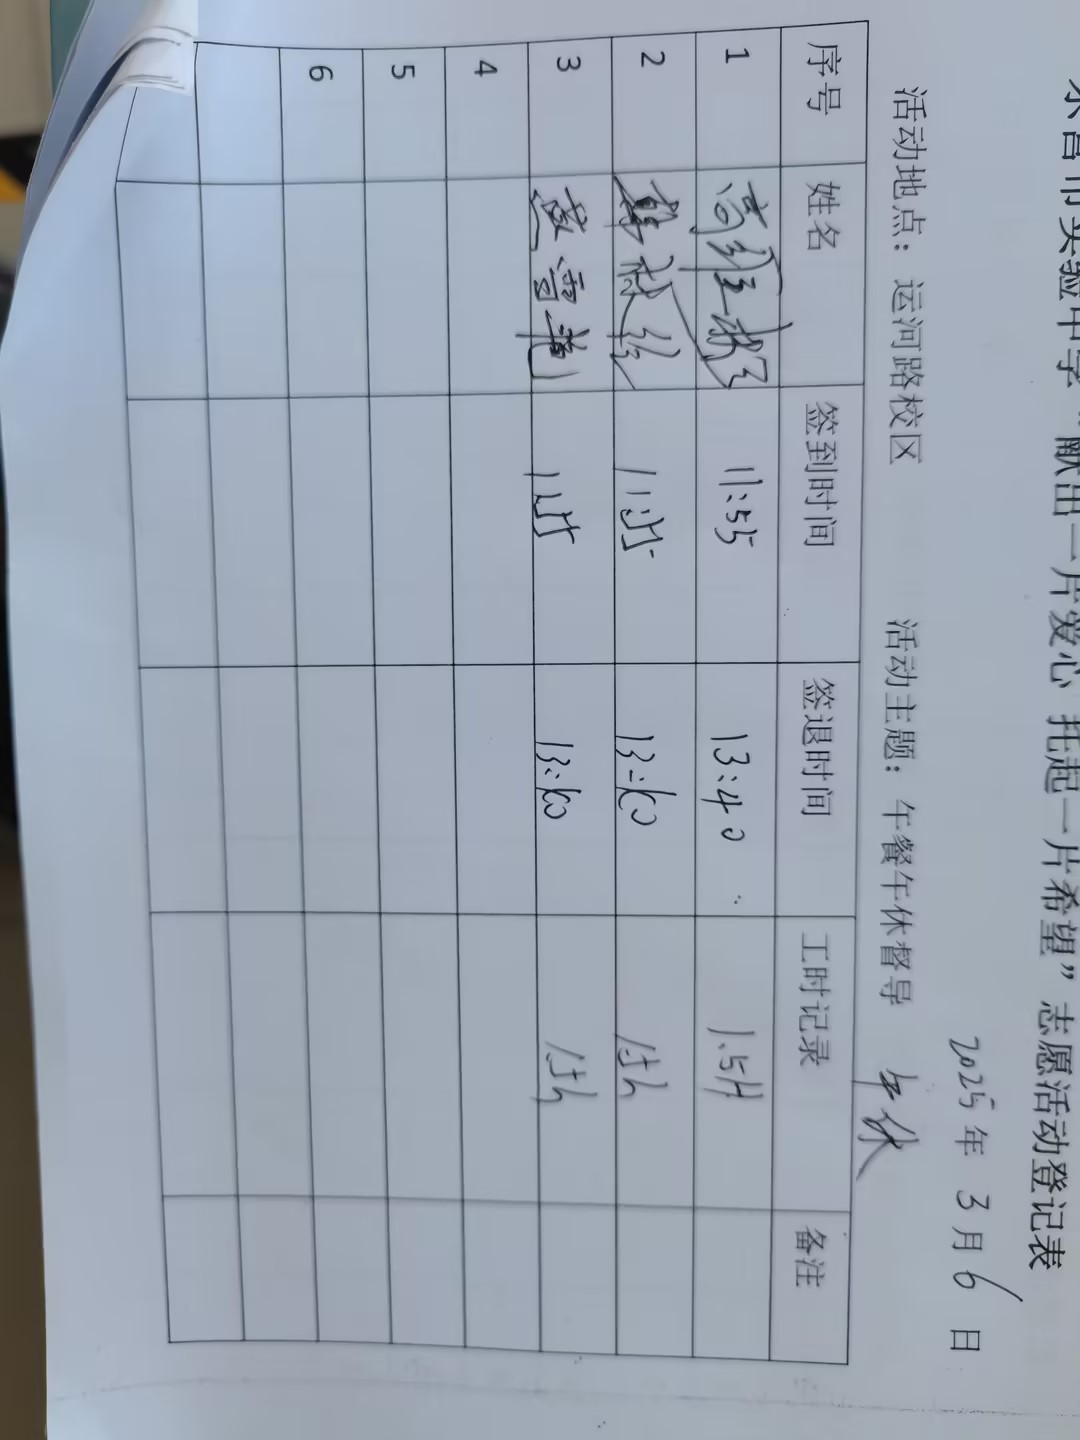 东营市实验中学“献出一片爱心 托起一片希望”志愿活动登记表
2025年 3月 6日
活动地点：运河路校区 活动主题：午餐午休督导 午休
序号 姓名 签到时间 签退时间 工时记录 备注
1 11:55 13:40 1.5H
2 11:55 13:40 1.5h
3 13:40 1.5h
4
5
6